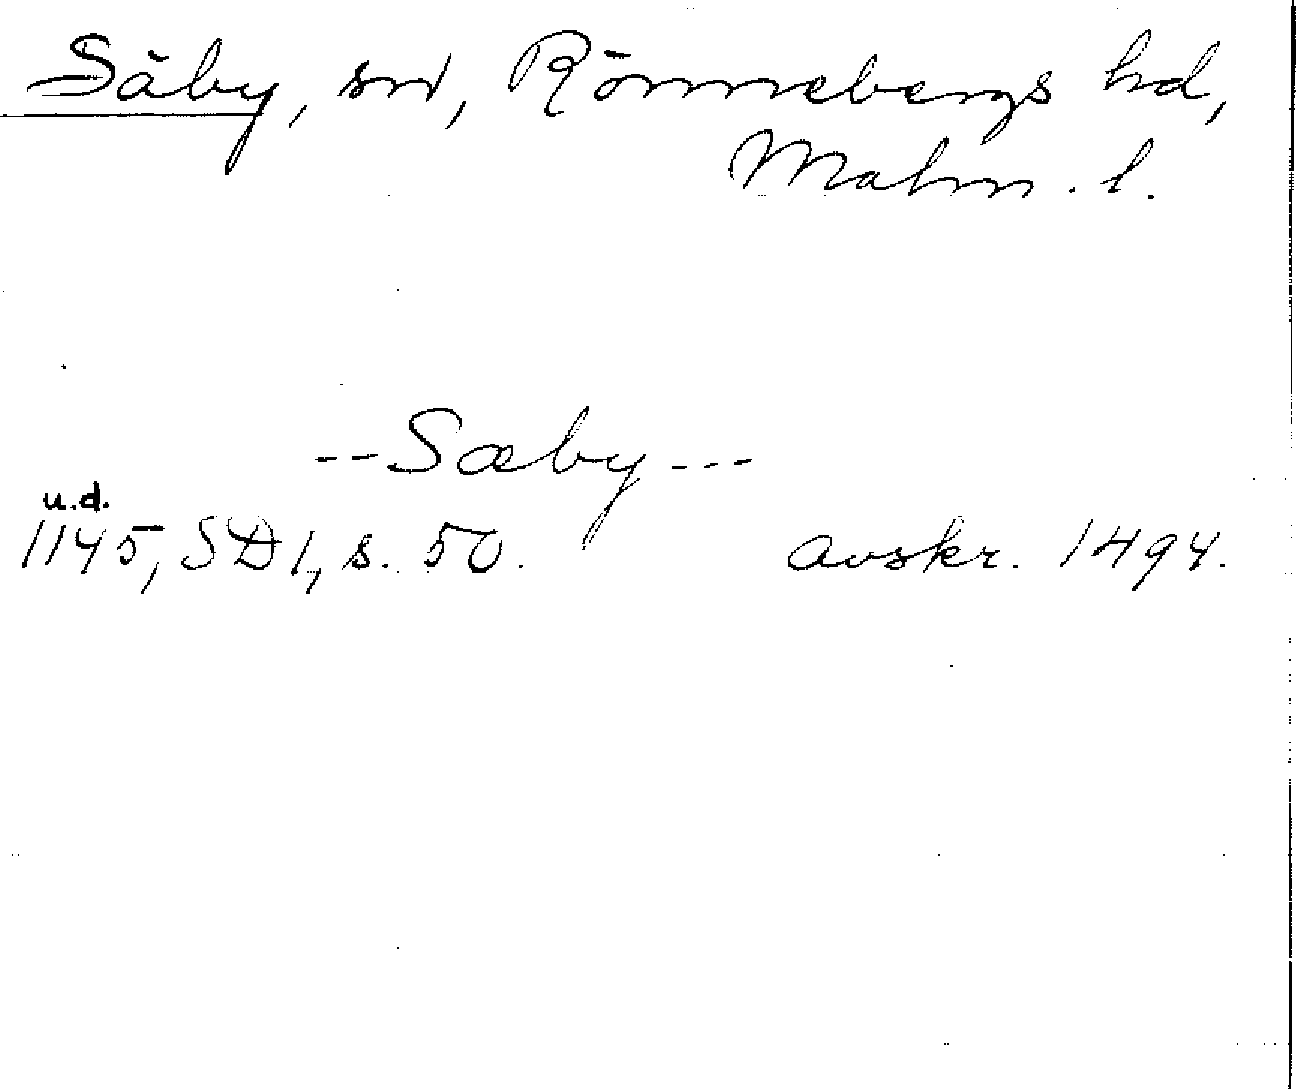 Säby, sn, Rönnebergs hd,
Malm. l.
--Sæby---
u.d.
1145, SD 1, s. 50. avskr. 1494.